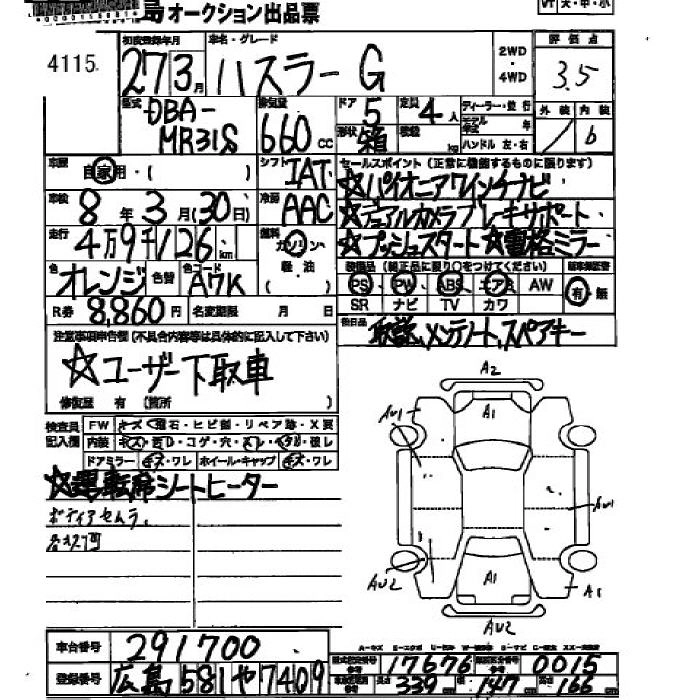 島オークション出品票
大・中・小
4115
初度登録年月 車名・グレード 2WD 評価点
27 3月 ハスラー G 4WD 3.5
型式 排気量 ドア 定員 ディーラー・並行 外装 内装
DBA- 5 4人 モデル年式 年
MR31S 660cc 形状 箱 積載 kg ハンドル 左・右 b
車歴 自家用・( ) シフト IAT セールスポイント(正常に機能するものに限ります)
☆パイオニアワインチナビ
車検 8年3月(30日) 冷房 AAC ☆デュアルカメラブレーキサポート
走行 4万9千126km 燃料 ガソリン ☆プッシュスタート☆電格ミラー
軽油
色 オレンジ 色替 色コード A7K 装備品(純正品に限り○をつけてください)
PS PW ABS エアB AW 有・無
R券 8,860円 名変期限 月 日 SR ナビ TV カワ
注意事項申告欄(不具合内容等は具体的に記入して下さい) 後日品 取説、メンテノート、スペアキー
☆ユーザー下取車
修復歴 有(箇所 )
検査員 FW キズ・飛石・ヒビ割・リペア跡・X要
記入欄 内装 コゲ・穴・ 破レ
ドアミラー キズ・ワレ ホイール・キャップ キズ・ワレ
☆運転席シートヒーター
ボディアセムラ
各キズ凹
A2
A1
AU1
AU1
AU2
A1
A1
AU2
車台番号 291700
登録番号 広島 581 や 7409
型式指定番号 17676 類別区分番号 0015
長さ 339cm 幅 147cm 高さ 166cm